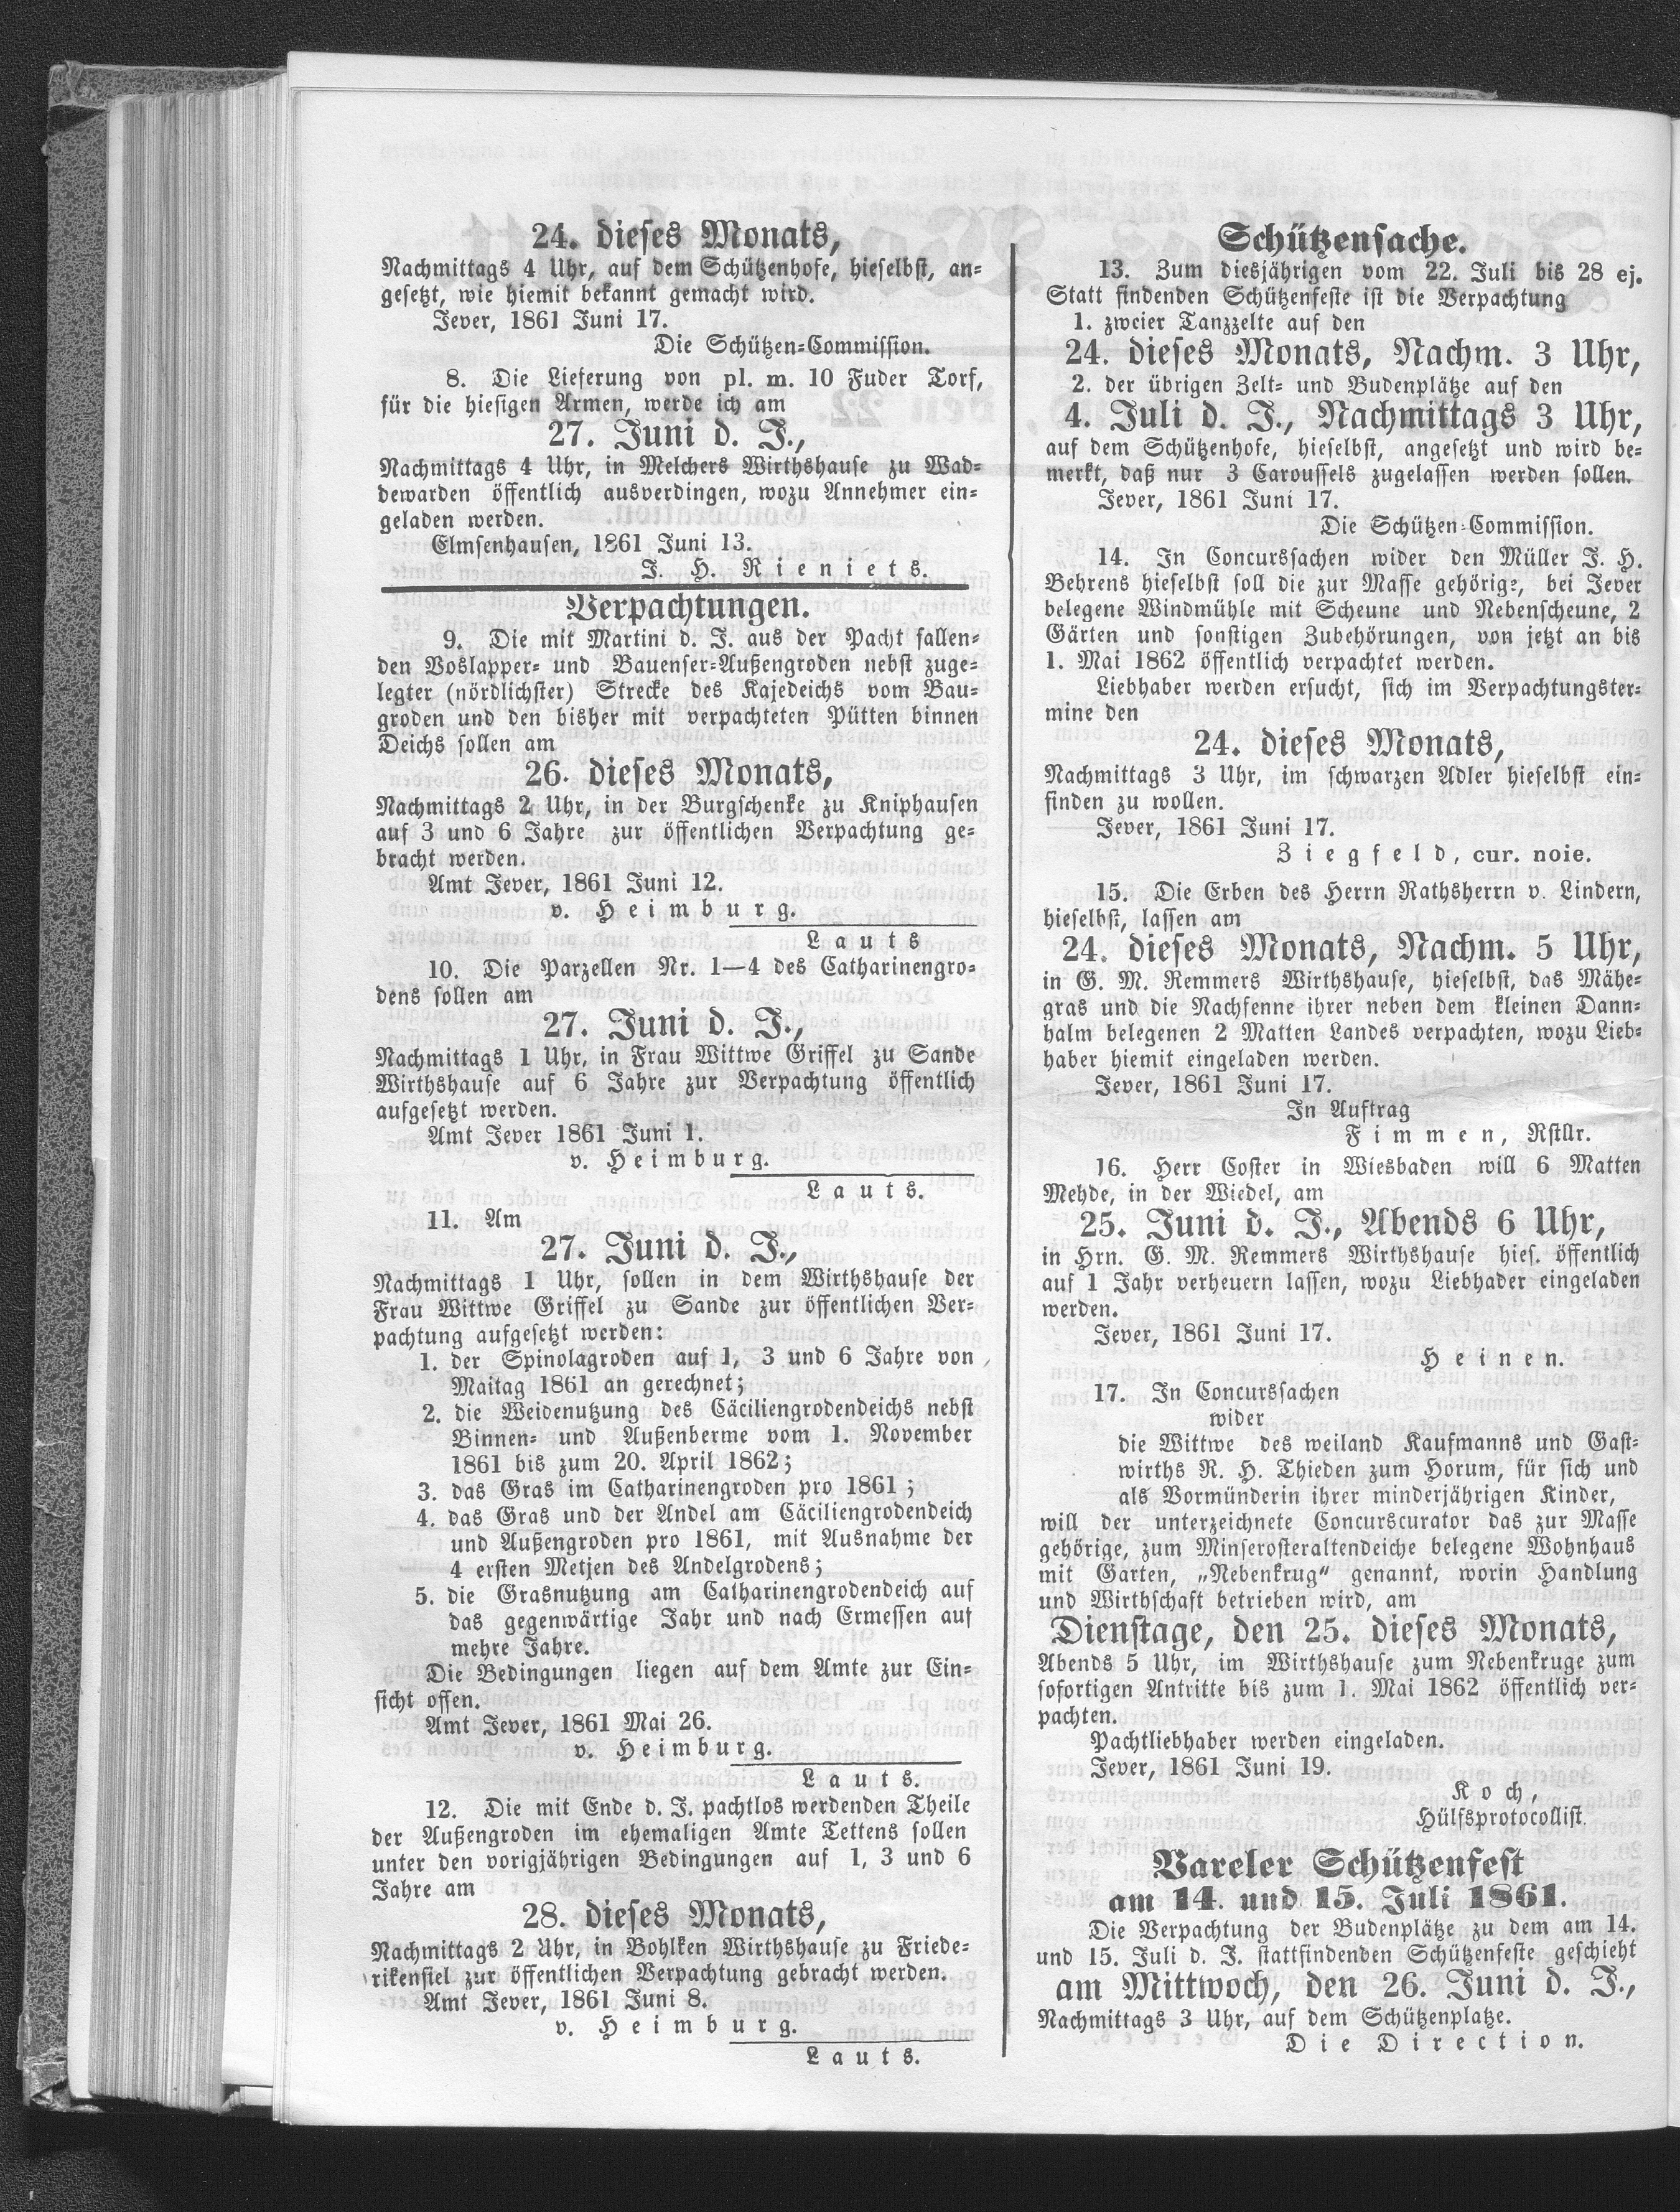 24. dieses Monats,
Nachmittags 4 Uhr, auf dem Schützenhofe, hieselbst, an=
gesetzt, wie hiemit bekannt gemacht wird.
Jever, 1861 Juni 17.
Die Schützen=Commission.
8. Die Lieferung von pl. m. 10 Fuder Torf,
für die hiesigen Armen, werde ich am
27. Juni d. J.,
Nachmittags 4 Uhr, in Melchers Wirthshause zu Wad=
dewarden öffentlich ausverdingen, wozu Annehmer ein=
geladen werden.
Elmsenhausen, 1861 Juni 13.
J. H. Rieniets.
Verpachtungen.
9. Die mit Martini d. J. aus der Pacht fallen=
den Voslapper= und Bauenser=Außengroden nebst zuge=
legter (nördlichster) Strecke des Kajedeichs vom Bau=
groden und den bisher mit verpachteten Pütten binnen
Deichs sollen am
26. dieses Monats,
Nachmittags 2 Uhr, in der Burgschenke zu Kniphausen
auf 3 und 6 Jahre zur öffentlichen Verpachtung ge=
bracht werden.
Amt Jever, 1861 Juni 12.
v. Heimburg.
Lauts
10. Die Parzellen Nr. 1—4 des Catharinengro=
dens sollen am
27. Juni d. J.,
Nachmittags 1 Uhr, in Frau Wittwe Griffel zu Sande
Wirthshause auf 6 Jahre zur Verpachtung öffentlich
aufgesetzt werden.
Amt Jever 1861 Juni 1.
v. Heimburg.
Lauts.
11. Am
27. Juni d. J.,
Nachmittags 1 Uhr, sollen in dem Wirthshause der
Frau Wittwe Griffel zu Sande zur öffentlichen Ver=
pachtung aufgesetzt werden:
1. der Spinolagroden auf 1, 3 und 6 Jahre von
Maitag 1861 an gerechnet;
2. die Weidenutzung des Cäciliengrodendeichs nebst
Binnen= und Außenberme vom 1. November
1861 bis zum 20. April 1862;
3. das Gras im Catharinengroden pro 1861;
4. das Gras und der Andel am Cäciliengrodendeich
und Außengroden pro 1861, mit Ausnahme der
4 ersten Metjen des Andelgrodens;
5. die Grasnutzung am Catharinengrodendeich auf
das gegenwärtige Jahr und nach Ermessen auf
mehre Jahre.
Die Bedingungen liegen auf dem Amte zur Ein=
sicht offen.
Amt Jever, 1861 Mai 26.
v. Heimburg.
Lauts.
12. Die mit Ende d. J. pachtlos werdenden Theile
der Außengroden im ehemaligen Amte Tettens sollen
unter den vorigjährigen Bedingungen auf 1, 3 und 6
Jahre am
28. dieses Monats,
Nachmittags 2 Uhr, in Bohlken Wirthshause zu Friede=
rikensiel zur öffentlichen Verpachtung gebracht werden.
Amt Jever, 1861 Juni 8.
v. Heimburg.
Lauts.
Schützensache.
13. Zum diesjährigen vom 22. Juli bis 28 ej.
Statt findenden Schützenfeste ist die Verpachtung
1. zweier Tanzzelte auf den
24. dieses Monats, Nachm. 3 Uhr,
2. der übrigen Zelt= und Budenplätze auf den
4. Juli d. J., Nachmittags 3 Uhr,
auf dem Schützenhofe, hieselbst, angesetzt und wird be=
merkt, daß nur 3 Caroussels zugelassen werden sollen.
Jever, 1861 Juni 17.
Die Schützen=Commission.
14. In Concurssachen wider den Müller J. H.
Behrens hieselbst soll die zur Masse gehörige, bei Jever
belegene Windmühle mit Scheune und Nebenscheune, 2
Gärten und sonstigen Zubehörungen, von jetzt an bis
1. Mai 1862 öffentlich verpachtet werden.
Liebhaber werden ersucht, sich im Verpachtungster=
mine den
24. dieses Monats,
Nachmittags 3 Uhr, im schwarzen Adler hieselbst ein=
finden zu wollen.
Jever, 1861 Juni 17.
Ziegfeld, cur. noie.
15. Die Erben des Herrn Rathsherrn v. Lindern,
hieselbst, lassen am
24. dieses Monats, Nachm. 5 Uhr,
in G. M. Remmers Wirthshause, hieselbst, das Mähe=
gras und die Nachsenne ihrer neben dem kleinen Dann=
halm belegenen 2 Matten Landes verpachten, wozu Lieb=
haber hiemit eingeladen werden.
Jever, 1861 Juni 17.
In Auftrag
Fimmen, Rstllr.
16. Herr Coster in Wiesbaden will 6 Matten
Mehde, in der Wiedel, am
25. Juni d. J., Abends 6 Uhr,
in Hrn. G. M. Remmers Wirthshause hies. öffentlich
auf 1 Jahr verheuern lassen, wozu Liebhader eingeladen
werden.
Jever, 1861 Juni 17.
Heinen.
17. In Concurssachen
wider
die Wittwe des weiland Kaufmanns und Gast=
wirths R. H. Thieden zum Horum, für sich und
als Vormünderin ihrer minderjährigen Kinder,
will der unterzeichnete Concurscurator das zur Masse
gehörige, zum Minserosteraltendeiche belegene Wohnhaus
mit Garten, „Nebenkrug“ genannt, worin Handlung
und Wirthschaft betrieben wird, am
Dienstage, den 25. dieses Monats,
Abends 5 Uhr, im Wirthshause zum Nebenkruge zum
sofortigen Antritte bis zum 1. Mai 1862 öffentlich ver=
pachten.
Pachtliebhaber werden eingeladen.
Jever, 1861 Juni 19.
Koch,
Hülfsprotocollist.
Vareler Schützenfest
am 14. und 15. Juli 1861.
Die Verpachtung der Budenplätze zu dem am 14.
und 15. Juli d. J. stattfindenden Schützenfeste geschieht
am Mittwoch, den 26. Juni d. J.,
Nachmittags 3 Uhr, auf dem Schützenplatze.
Die Direction.